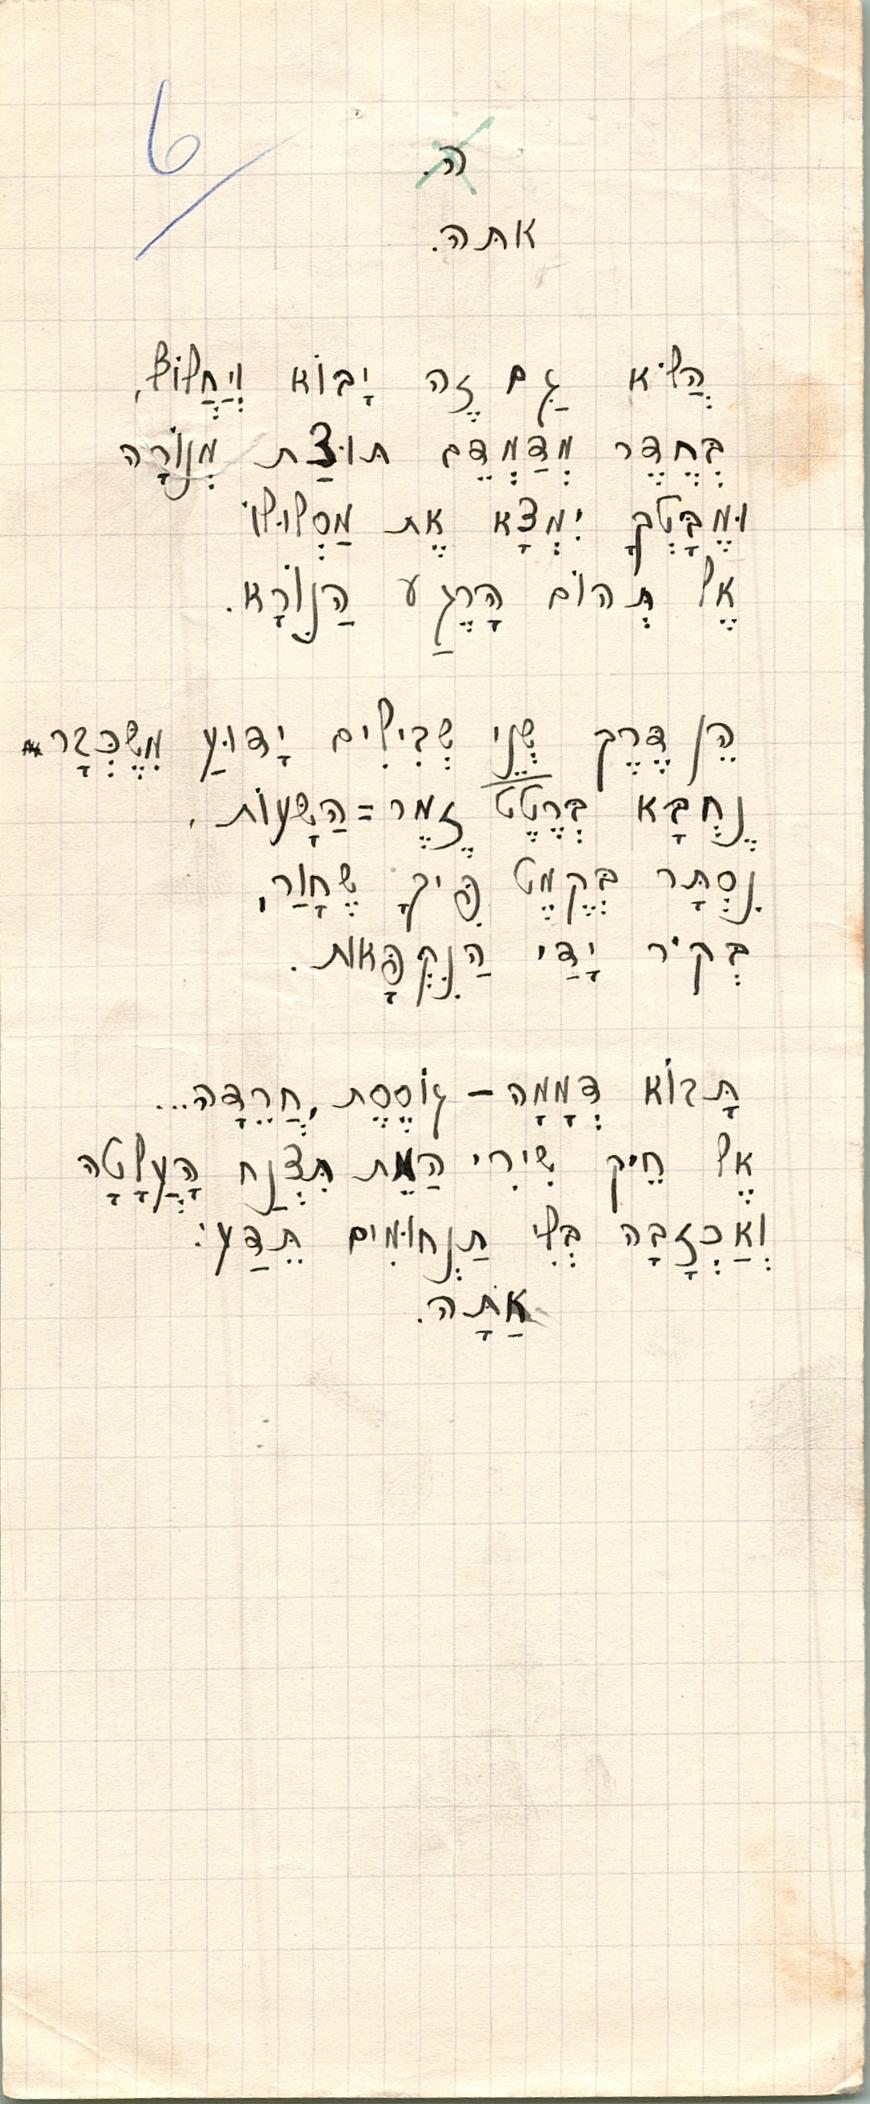 6
ה.
אתה.
הֲלֹא גַּם זֶה יָבוֹא וְיַחֲלוֹף,
בְּחֶדֶר מְדַמְדֵּם תּוּצַת מְנוֹרָה
וּמֶבָּטְךָ יִמְצָא אֶת מַסְלוּלוֹ
אֶל תְּהוֹם הָרֶגַע הַנּוֹרָא.
הֵן דֶּרֶךְ שְׁנֵי שְׁבִילִים יָדוּעַ מִשֶּׁכְּבָר
נֶחְבָּא בְּרֶטֶט זֶמֶר=הַשָּׁעוֹת,
נִסְתָּר בְּקֶמֶט פִּיךָ שֶׁחָוַר,
בְּקֹר יָדַי הַנִּקְפָּאוֹת.
תָּבוֹא דְמָמָה – גוֹסֶסֶת, חֲרֵדָה...
אֶל חֵיק שִׁירִי הַמֵּת תִּצְנַח הָעֲלָטָה
וְאַכְזָבָה בְּלִי תַנְחוּמִים תֵּדַע:
אַתָּה.